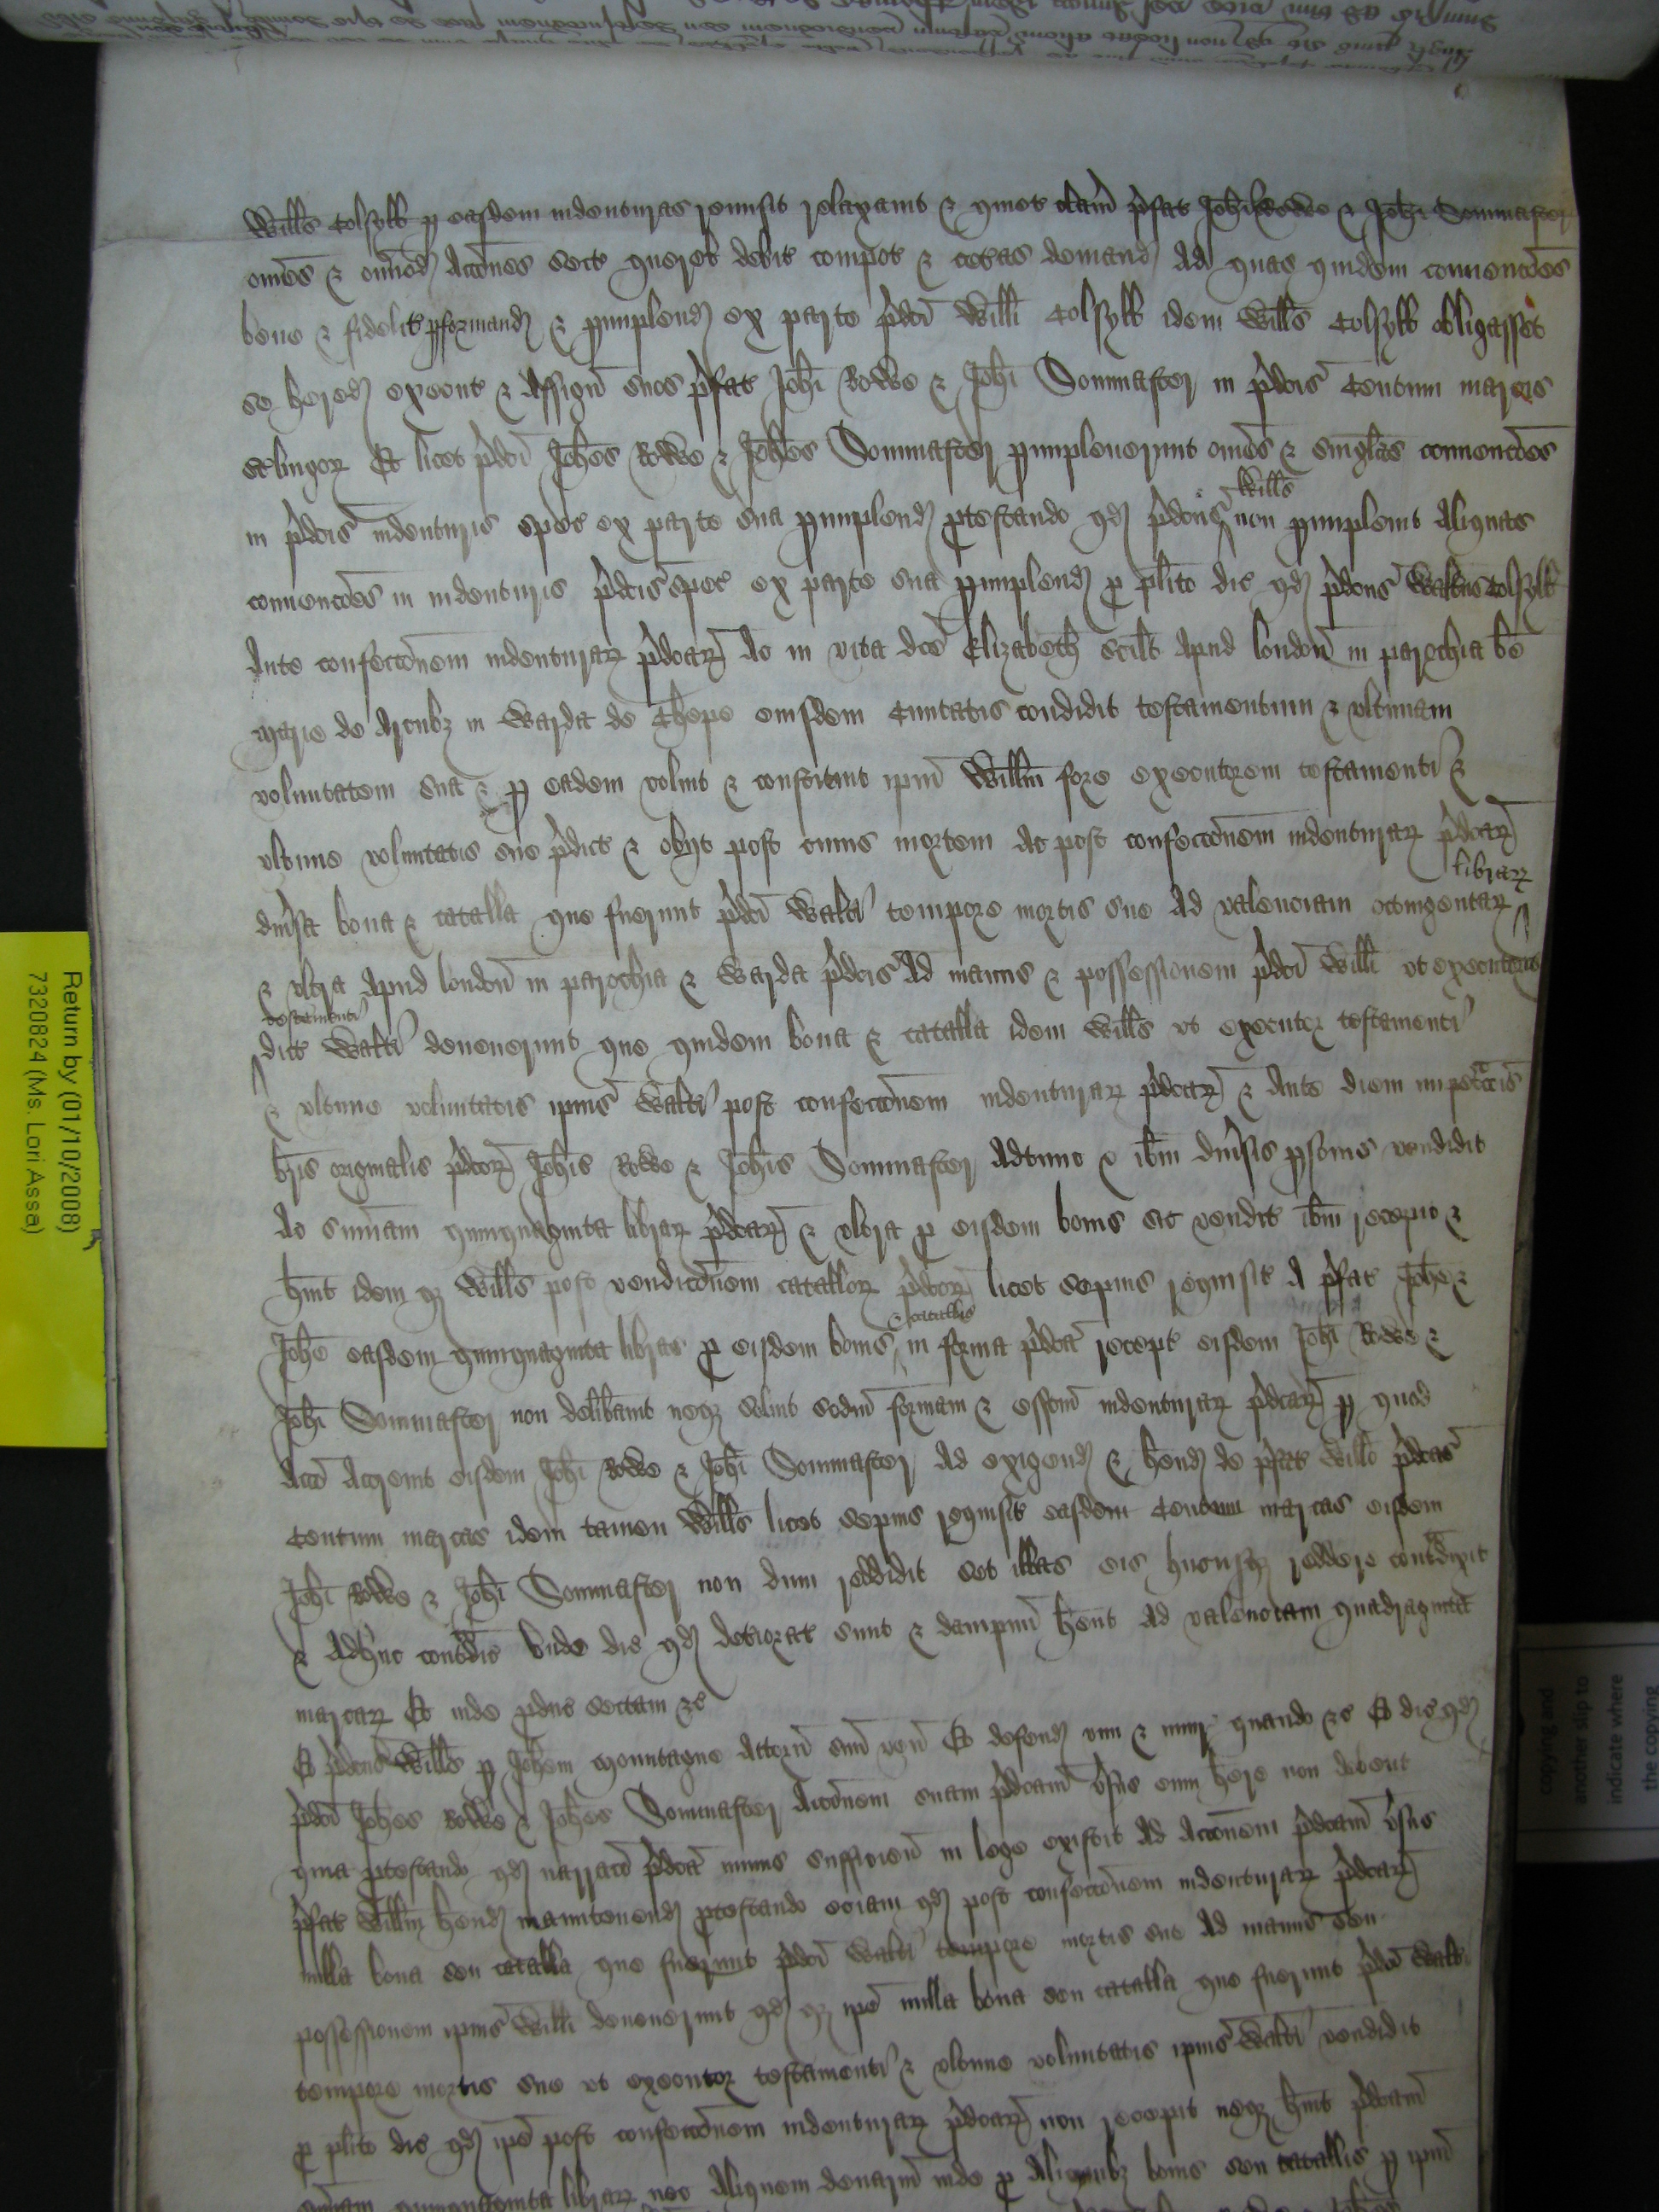 Willս Colsyll p easdem indenturas remisit relaxavit & quiet clam p̃fat Joħi Rowe & Joħi Sommaster
om̃es & om̃iod acc̃ones sect querel debit compot & cet̃as demand Ad quas quidem convenc̃oes
bene & fidelit pformand & pimplend ex parte p̃dc̃i Willi Colsyll idem Wills Colsyll obligasset
se hered execut & assign̄ suos p̃fat Joħi Rowe & Joħi Sommaster in p̃dc̃is Centum marcis
st̃lingor Et licet p̃dc̃i Joħes Rowe & Joħes Sommaster pimpleverunt om̃es & sing̃las convenc̃oes
in p̃dc̃is indenturis spec ex parte sua pimplend ptestando qd p̃dc̃us Wills non pimplevit aliquas
convenc̃oes in indenturis p̃dc̃is spec ex parte sua pimplend p pl̃ito dic qd p̃dc̃us Walt̃us Colsyll
ante confecc̃onem indenturar p̃dc̃ar ac in vita dc̃e Elizabeth scilt apud london̄ in parochia bẽ
marie de Arcubz in Warda de Chepe eiusdem Civitatis condidit testamentum & ultimam
voluntatem sua & p eadem voluit & constituit ip̃m Willm̃ fore executorem testamenti &
ultime voluntatis sue p̃dict & obijt post cuius mortem ac post confecc̃onem indenturar p̃dc̃ar
diṽsa bona & catalla que fuerunt p̃dc̃i Walt̃i tempore mortis sue ad valenciam octingentar librar
& ultra apud london̄ in parochia & Warda p̃dc̃is ad manus & possessionem p̃dc̃i Willi ut executoris
testamenti dict Walt̃i devenerunt que quidem bona & catalla idem Wills ut executor testamenti
& ultime voluntatis ip̃ius Walt̃i post confecc̃onem indenturar p̃dc̃ar & ante diem impetrac̃is
br̃is originalis p̃dc̃or Joħis Rowe & Joħis Sommaster adtunc & ib̃m diṽsis psonis vendidit
ac sum̃am quinquaginta librar p̃dc̃ar & ultra p eisdem bonis sic vendit ib̃m recepit &
h̃uit idem qz Wills post vendic̃onem catallor p̃dc̃or licet sepius requisit a p̃fat Joħe &
Joħe easdem quinquaginta libras p eisdem bonis & catallis in forma p̃dc̃a recept eisdem Joħi Rowe &
Joħi Sommaster non delib̃avit neqz solvit scdm̃ formam & eff̃cm indenturar p̃dc̃ar p quod
acc̃o accrevit eisdem Joħi Rowe & Joħi Sommaster ad exigend & h̃end de p̃fat Willo p̃dc̃as
Centum marcas idem tamen Wills licet sepius requisit easdem Centum marcas eisdem
Joħi Rowe & Joħi Sommaster non dum reddidit set illas eis hucusqz reddere contradixit
& adhuc contradic Unde dic qd deteriorat sunt & dampnū h̃ent ad valenciam quadraginta
marcar Et inde pduc sectam &c
Et p̃dc̃us Wills p Joħem Mountague Attorn̄ suū ven̄ Et defend vim & iniur quando &c Et dic qd
p̃dc̃i Joħes Rowe & Joħes Sommaster acc̃onem suam p̃dc̃am ṽsus eum h̃ere non debent
quia ptestando qd narrac̃o p̃dc̃a minus sufficien̄ in lege existit ad acc̃onem p̃dc̃am ṽsus
p̃fat Willm̃ h̃end manutenend ptestando eciam qd post confecc̃onem indenturar p̃dc̃ar
nulla bona seu catalla que fuerunt p̃dc̃i Walt̃i tempore mortis sue ad manus seu
possessionem ip̃ius Willi devenerunt qd qz ip̃e nulla bona seu catalla que fuerunt p̃dc̃i Walt̃i
tempore mortis sue ut executor testamenti & ultime voluntatis ip̃ius Walt̃i vendidit
p pl̃ito dic qd ip̃e post confecc̃onem indenturar p̃dc̃ar non recepit neqz h̃uit p̃dc̃am
sum̃am quinquaginta librar nec aliquem denariū inde p aliquibz bonis seu catallis p ip̃m
Return by (01/10/2008)
7320824 (Ms. Lori Assa)
copying and
another slip to
indicate where
the copying